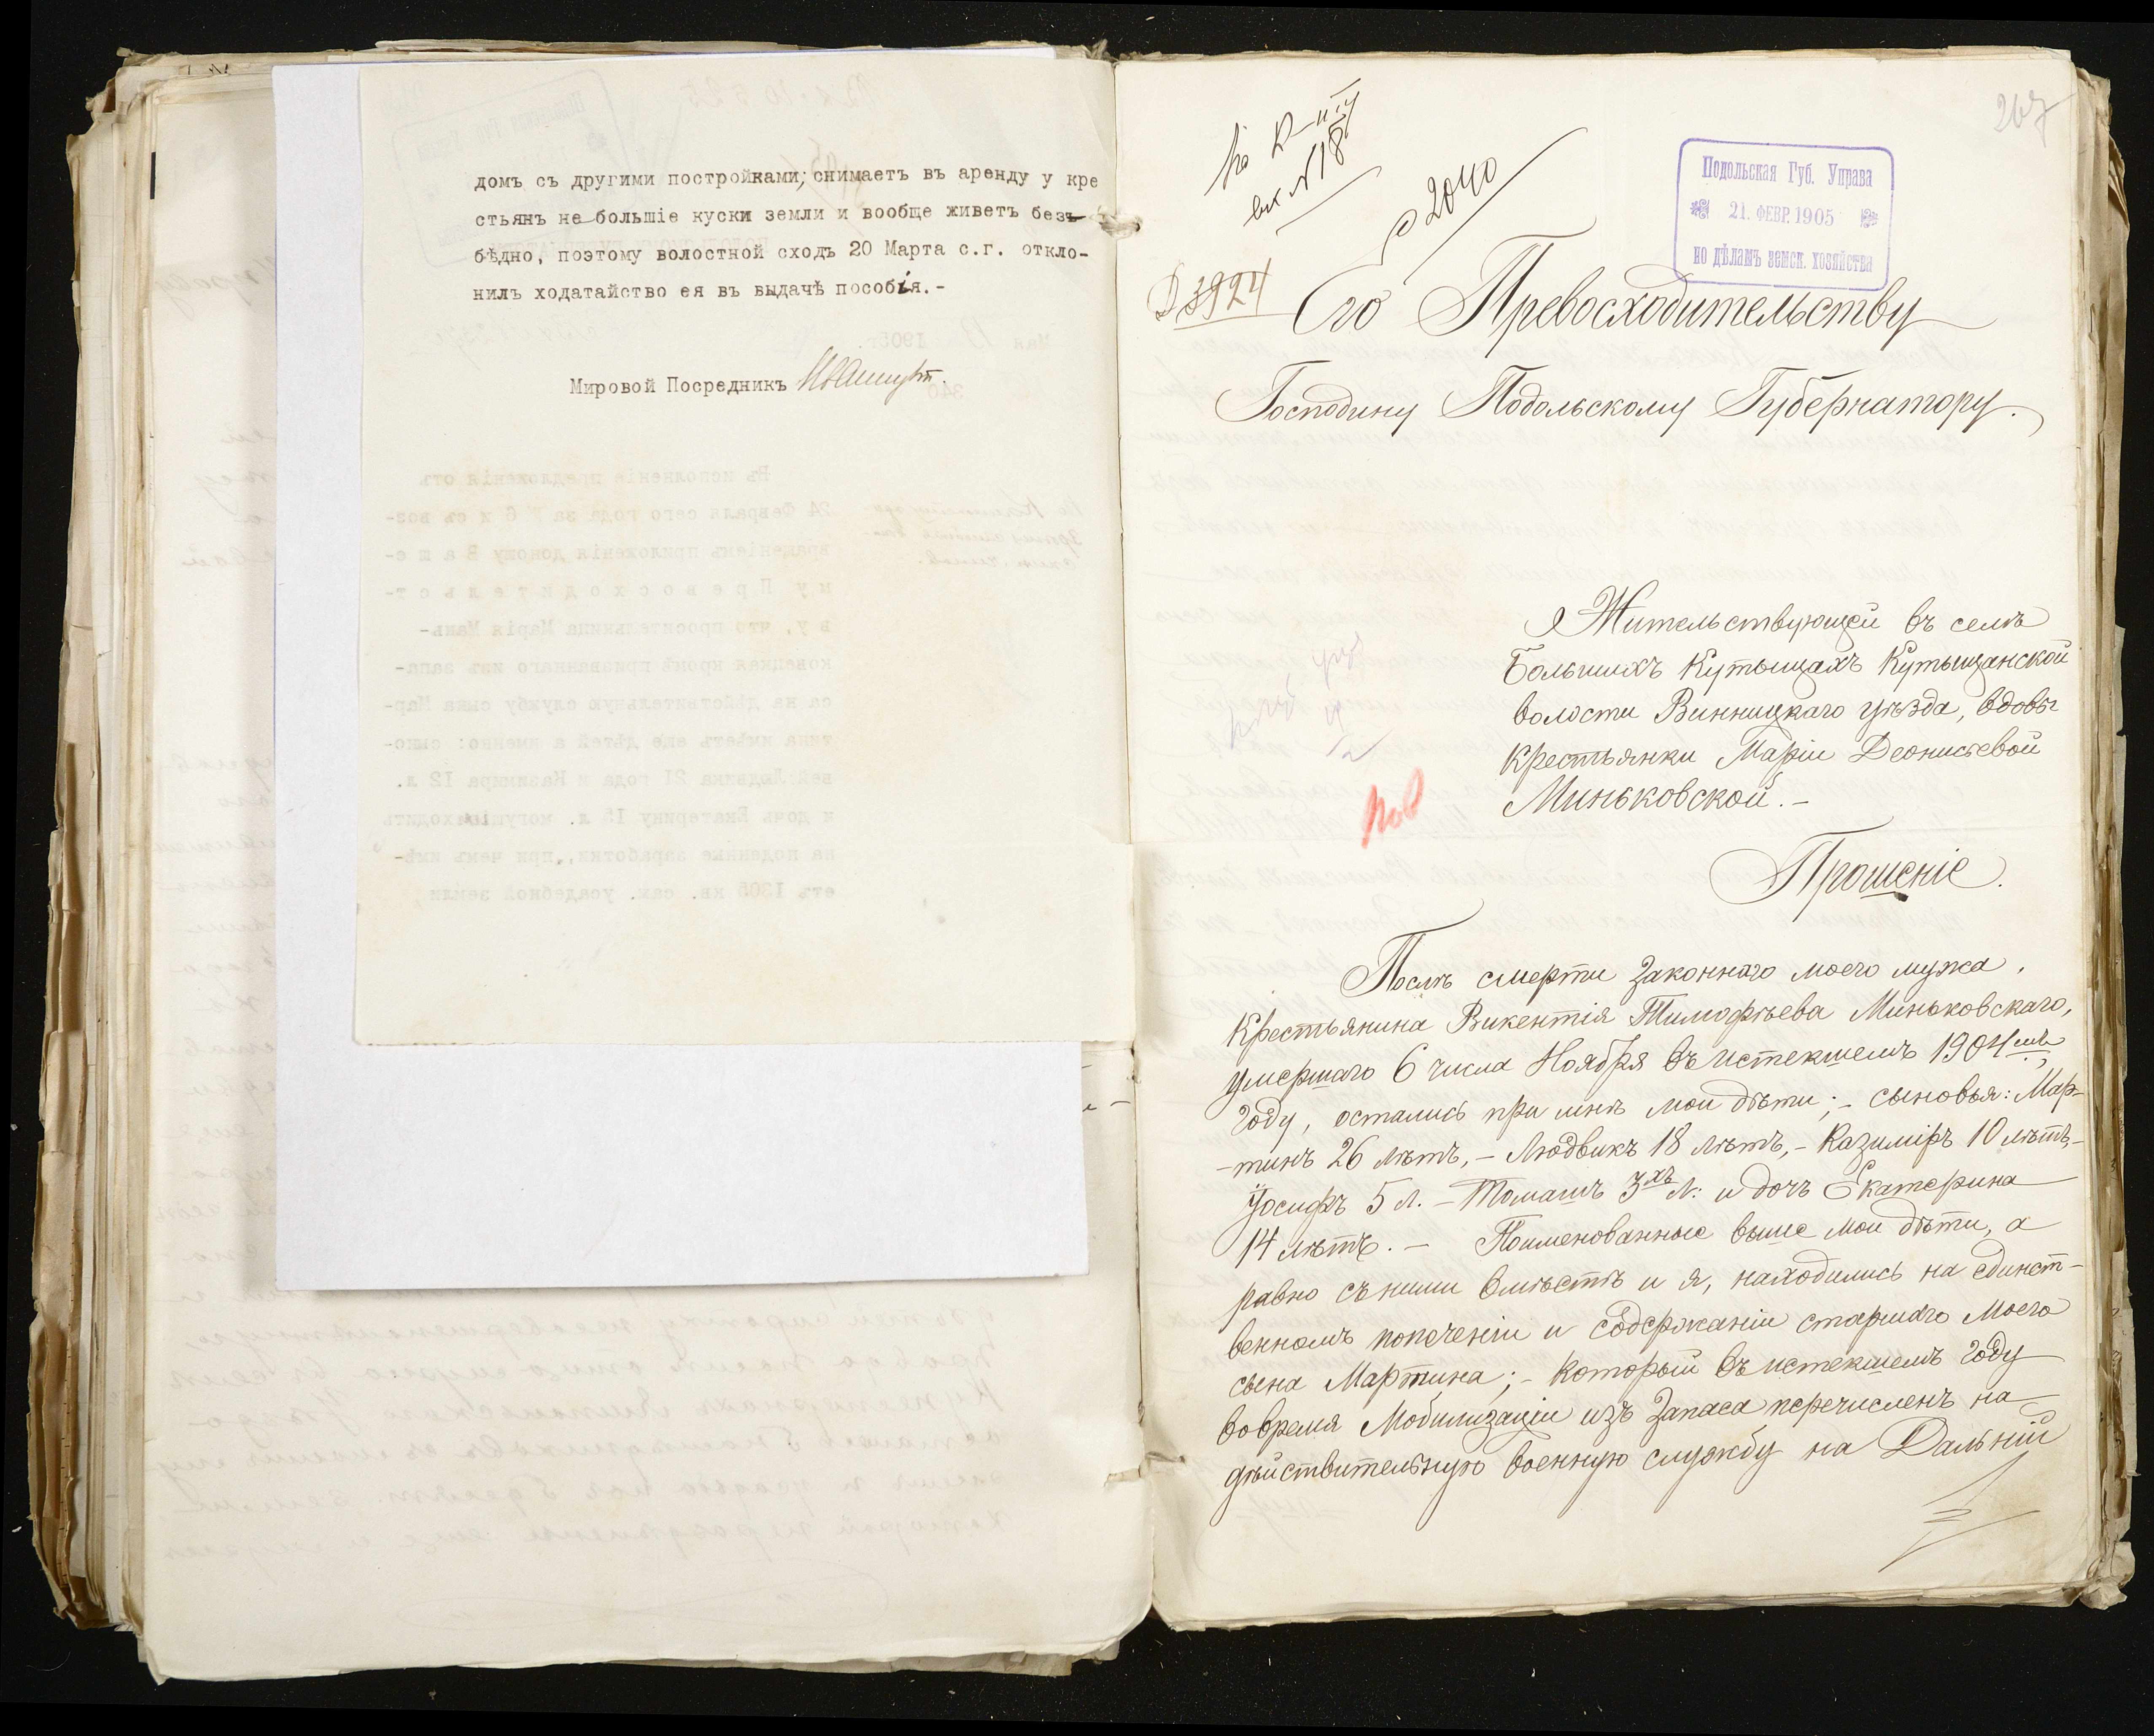 домъ съ другими постройками, снимаетъ въ аренду у кре
стьянъ не большіе куски земли и вообще живетъ безъ-
бѣдно, поэтому волостной сходъ 20 Марта с.г. откло-
нилъ ходатайство ея въ выдачѣ пособія.-
Мировой Посредникъ
267
вх. № 18
2040
Подольская Губ. Управа
21. ФЕВР. 1905
по дѣламъ земск. хозяйства
3924
Его Превосходительству
Господину Подольскому Губернатору.
Жительствующей въ селѣ
Большихъ Кутыщахъ Кутыщанской
волости Винницкаго уѣзда, вдовы
крестьянки Маріи Деонисьевой
Миньковской.-
Прошеніе.
Послѣ смерти законнаго моего мужа,
Крестьянина Викентія Тимофѣева Миньковскаго,
умершаго 6 числа Ноября въ истекшемъ 1904мъ
году, остались при мнѣ мои дѣти;- сыновья: Мар-
-тинъ 26 лѣтъ,- Людвикъ 18 лѣтъ,- Казиміръ 10 лѣтъ,-
Іосифъ 5 л.- Томашъ 3хъ л: и дочь Екатерина
14 лѣтъ.- Поименованные выше мои дѣти, а
равно съ ними вмѣстѣ и я, находились на единст-
венномъ попеченіи и содержаніи старшаго моего
сына Мартина;- который въ истекшемъ году
вовремя Мобилизаціи изъ Запаса перечисленъ на
дѣйствительную военную службу на Дальній